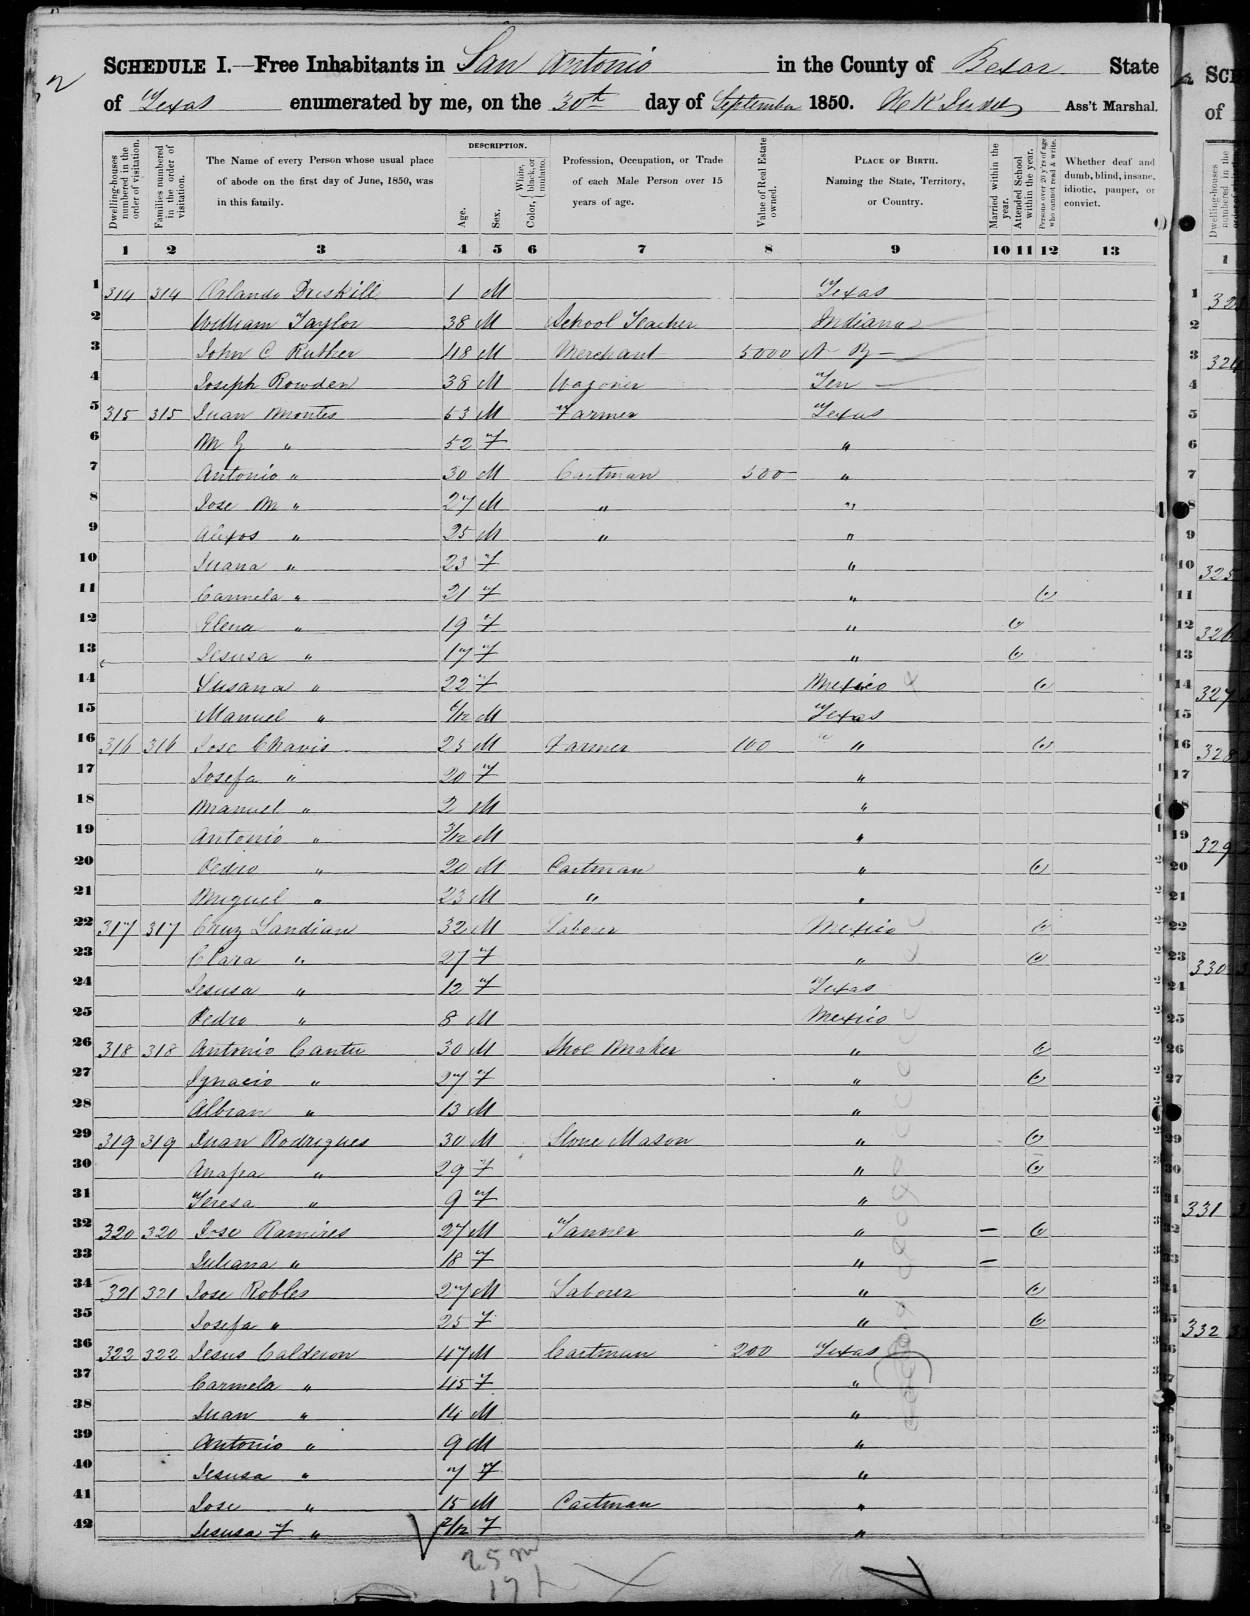 SCHEDULE I.—Free Inhabitants in San Antonio in the County of Bexar State
of Texas enumerated by me, on the 30th day of September 1850. Ass't Marshal.
Dwelling-houses numbered in the order of visitation.
Families numbered in the order of visitation.
The Name of every Person whose usual place of abode on the first day of June, 1850, was in this family.
DESCRIPTION.
Age.
Sex.
Color, { White, black, or mulatto.
Profession, Occupation, or Trade of each Male Person over 15 years of age.
Value of Real Estate owned.
PLACE OF BIRTH. Naming the State, Territory, or Country.
Married within the year.
Attended School within the year.
Persons over 20 y'rs of age who cannot read & write.
Whether deaf and dumb, blind, insane, idiotic, pauper, or convict.
1 2 3 4 5 6 7 8 9 10 11 12 13
1 314 314 Orlando Driskill 1 M Texas
2 William Taylor 38 M School Teacher Indiana
3 John C Ruther 48 M Merchant 5000 N
4 Joseph Rowden 38 M Wagoner Ten
5 315 315 Juan Montes 53 M Farmer Texas
6 M G " 52 F "
7 Antonio " 30 M Cartman 500 "
8 Jose M " 27 M " "
9 Alexos " 25 M " "
10 Juana " 23 F "
11 Carmela " 21 F "
12 Elena " 19 F "
13 Jesusa " 17 F "
14 Susana " 22 F Mexico
15 Manuel " 6/12 M Texas
16 316 316 Jose Chavis 25 M Farmer 100 "
17 Josefa " 20 F "
18 Manuel " 2 M "
19 Antonio " 3/12 M "
20 Pedro " 20 M Cartman "
21 Miguel " 23 M " "
22 317 317 Cruz Sandian 32 M Laborer Mexico
23 Clara " 27 F "
24 Jesusa " 12 F Texas
25 Pedro " 8 M Mexico
26 318 318 Antonio Cantu 30 M Shoe Maker "
27 Ignacio " 27 F "
28 Albian " 13 M "
29 319 319 Juan Rodrigues 30 M Stone Mason "
30 Anapa " 29 F "
31 Teresa " 9 F "
32 320 320 Jose Ramires 27 M Tanner "
33 Juliana " 18 F "
34 321 321 Jose Robles 27 M Laborer "
35 Josefa " 25 F "
36 322 322 Jesus Calderon 47 M Cartman 200 Texas
37 Carmela " 45 F "
38 Juan " 14 M "
39 Antonio " 9 M "
40 Jesusa " 7 F "
41 Jose " 15 M Cartman "
42 Jesusa F " 2/12 F "
25 m
17 f